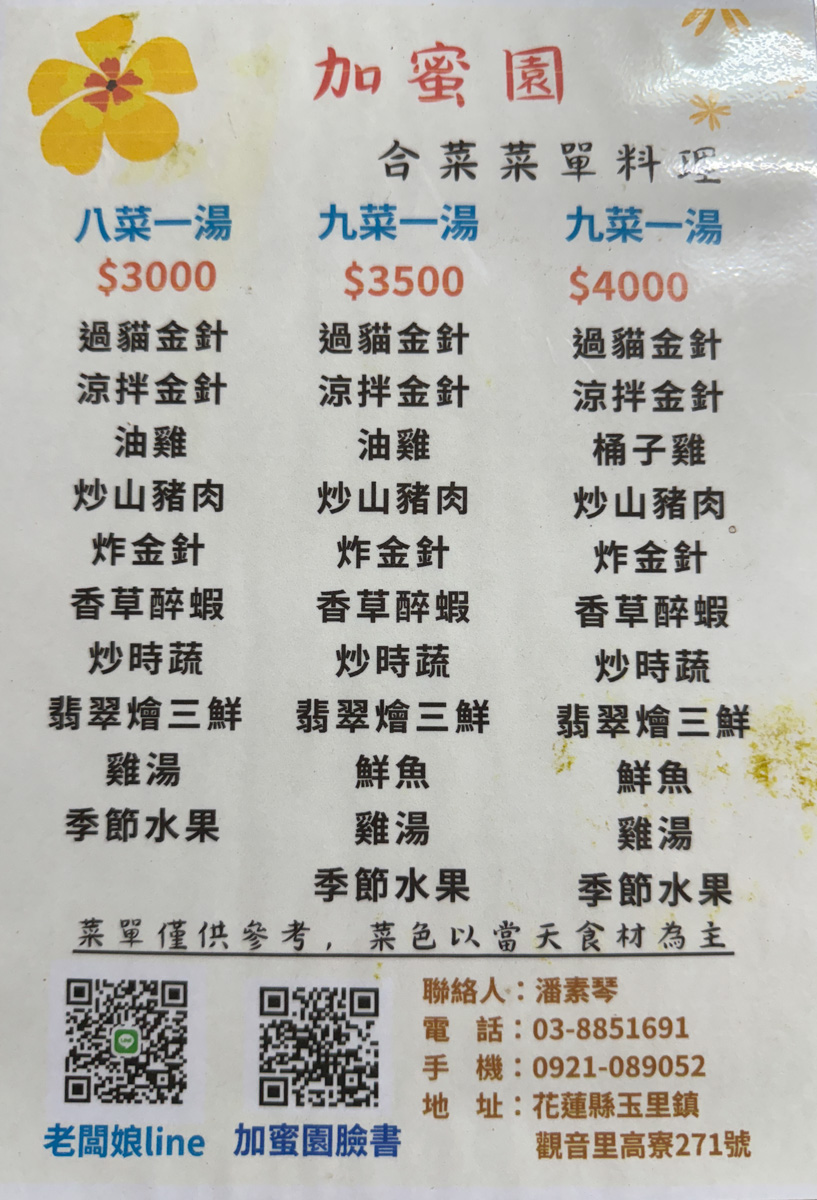 加蜜園
合菜菜單料理
八菜一湯
$3000
過貓金針
涼拌金針
油雞
炒山豬肉
炸金針
香草醉蝦
炒時蔬
翡翠燴三鮮
雞湯
季節水果
九菜一湯
$3500
過貓金針
涼拌金針
油雞
炒山豬肉
炸金針
香草醉蝦
炒時蔬
翡翠燴三鮮
鮮魚
雞湯
季節水果
九菜一湯
$4000
過貓金針
涼拌金針
桶子雞
炒山豬肉
炸金針
香草醉蝦
炒時蔬
翡翠燴三鮮
鮮魚
雞湯
季節水果
菜單僅供參考，菜色以當天食材為主
老闆娘line
加蜜園臉書
聯絡人：潘素琴
電　話：03-8851691
手　機：0921-089052
地　址：花蓮縣玉里鎮
觀音里高寮271號